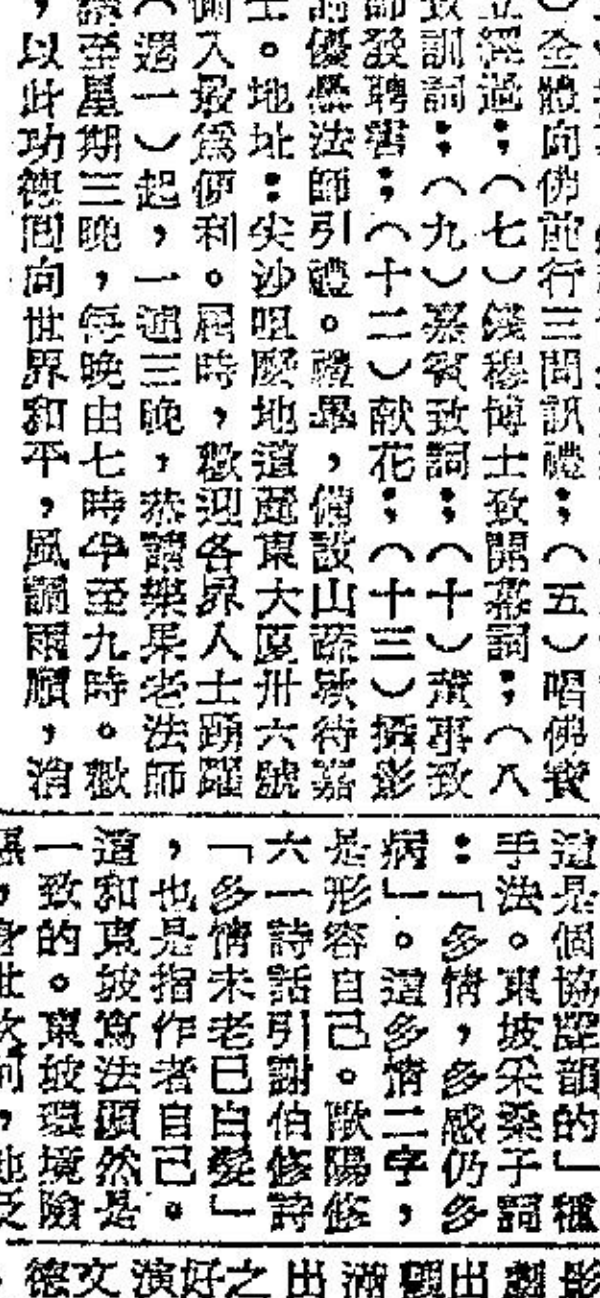 ）全體向佛前行三問訊禮；（五）唱佛寶
經過；（七）錢穆博士致開幕詞；（八
致訓詞；（九）嘉賓致詞；（十）董事致
發聘書；（十二）献花；（十三）攝影
優曇法師引禮。禮畢，備設山蔬欵待嘉
。地址：尖沙咀慶地道麗東大厦卅六號
入最為便利。屆時，歡迎各界人士踴躍
（選一）起，一連三晚，恭請樂果老法師
至星期三晚，每晚由七時半至九時。歡
，以此功德回向世界和平，風調雨順，消
這是個協韻的」種
手法。東坡采桑子詞
：「多情，多感仍多
病」。這多情二字，
是形容自己。歐陽修
六一詩話引謝伯修詩
「多情未老已白髮」
，也是指作者自己。
這和東坡寫法顯然是
一致的。東坡環境險
影劇出觀滿出之好演文德